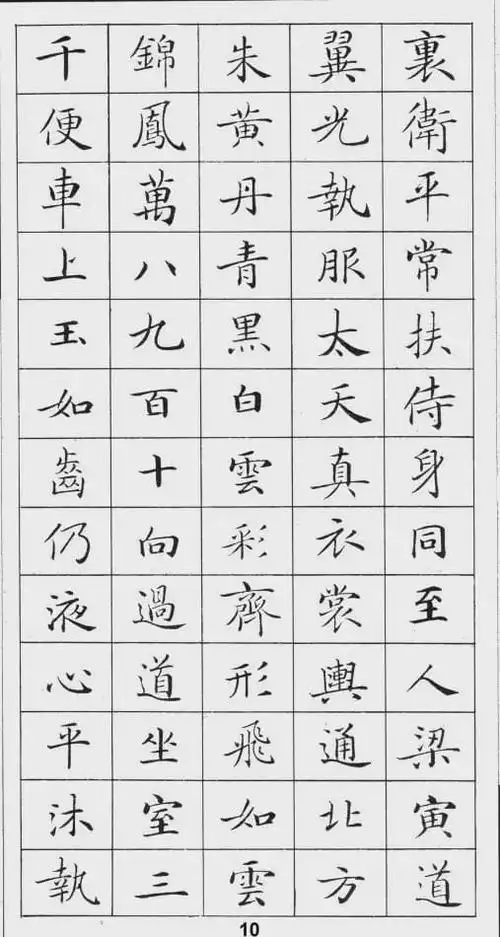 裏衛平常扶侍身同至人梁寅道
翼光執服太天真衣裳輿通北方
朱黃丹青黑白雲彩齊形飛如雲
錦鳳萬八九百十向過道坐室三
千便車上玉如齒仍液心平沐執
10